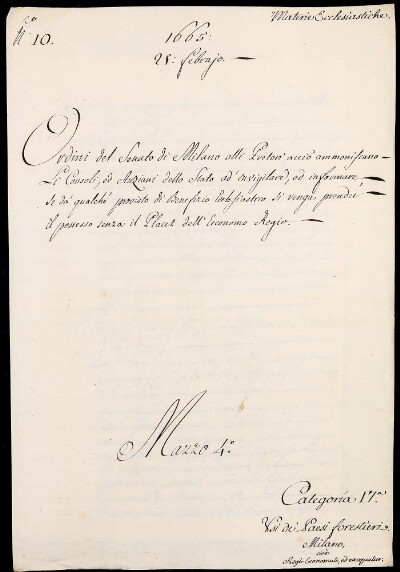 Materie Ecclesiastiche.
N.º 10.
1665:
25: Febrajo.
Ordini del Senato di Milano alli Pretori acciò ammoniscano
Li Consoli, ed Anziani dello Stato ad invigilare, ed informare
Se da qualche provisto di Benefizio Eccl.siastico Si venga prendere
il possesso senza il Placet dell'Economo Regio.
Mazzo 4.º
Categoria 17.a
Usi de' Paesi forestieri.
Milano,
cioè
Regio Economato, ed exequatur.